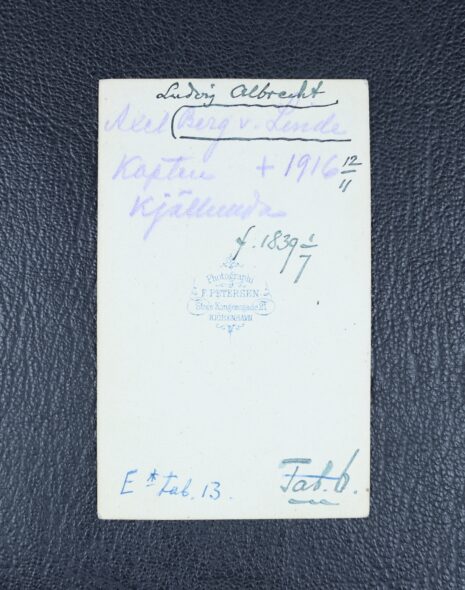 Ludvig Albrecht
Axel Berg v. Linde
Kapten + 1916 12/11
Kjällunda
f. 1839 1/7
Photographi
F. PETERSEN
Store Kongensgade 21
KJØBENHAVN
E * tab. 13.
Tab. 6.